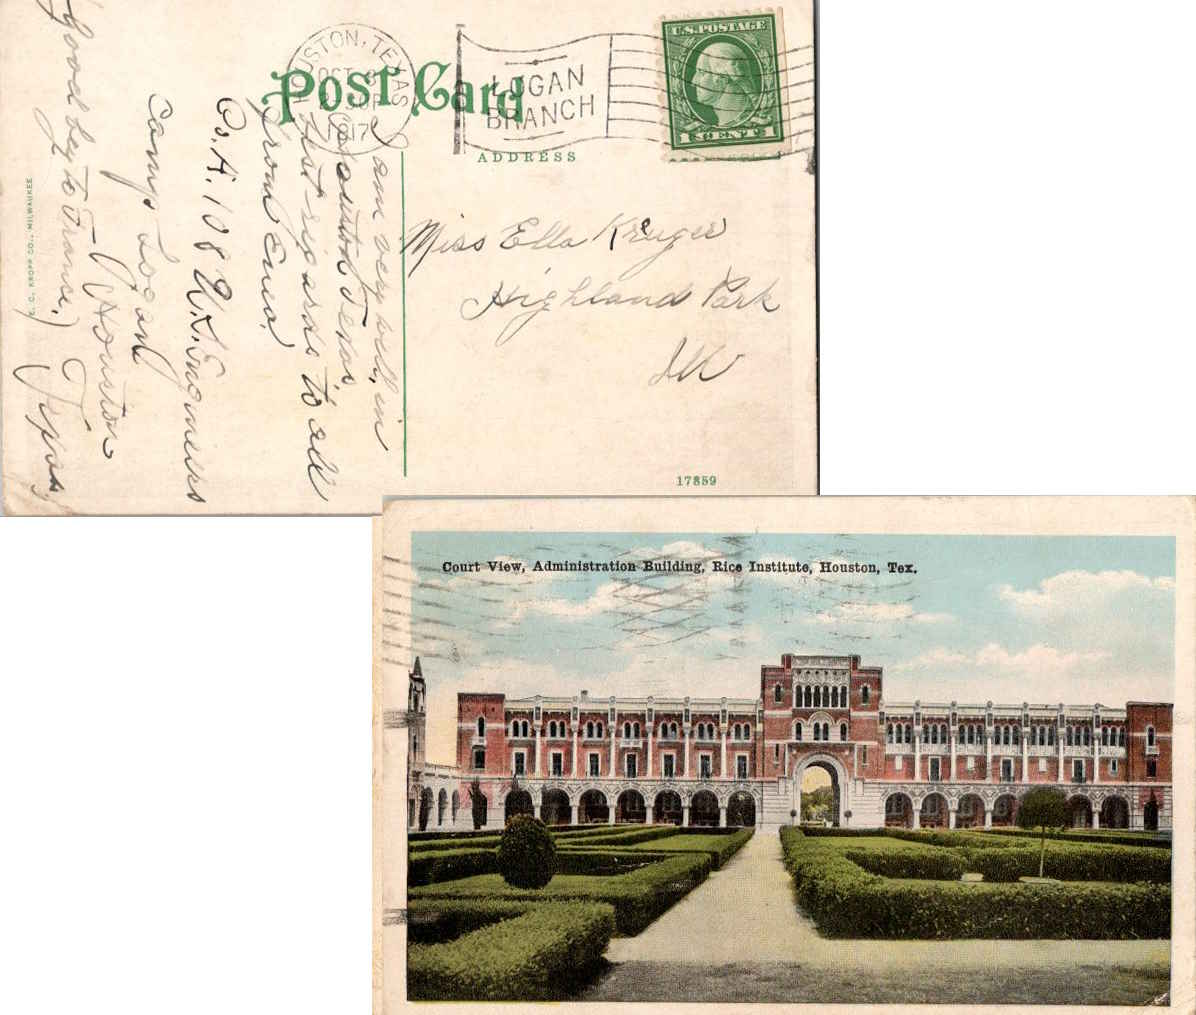 Post Card
HOUSTON, TEXAS
OCT 8
1917
LOGAN
BRANCH
U.S. POSTAGE
1 CENT 1
ADDRESS
Miss Ella Kreuger
Highland Park
Ill
17859
I am very well, in
Houston Texas
best regards to all
From
Co. A. 108 U.S. Engineers
Camp Logan
Houston
Good bey to France.) Texas.
E. C. KROPP CO., MILWAUKEE
Court View, Administration Building, Rice Institute, Houston, Tex.